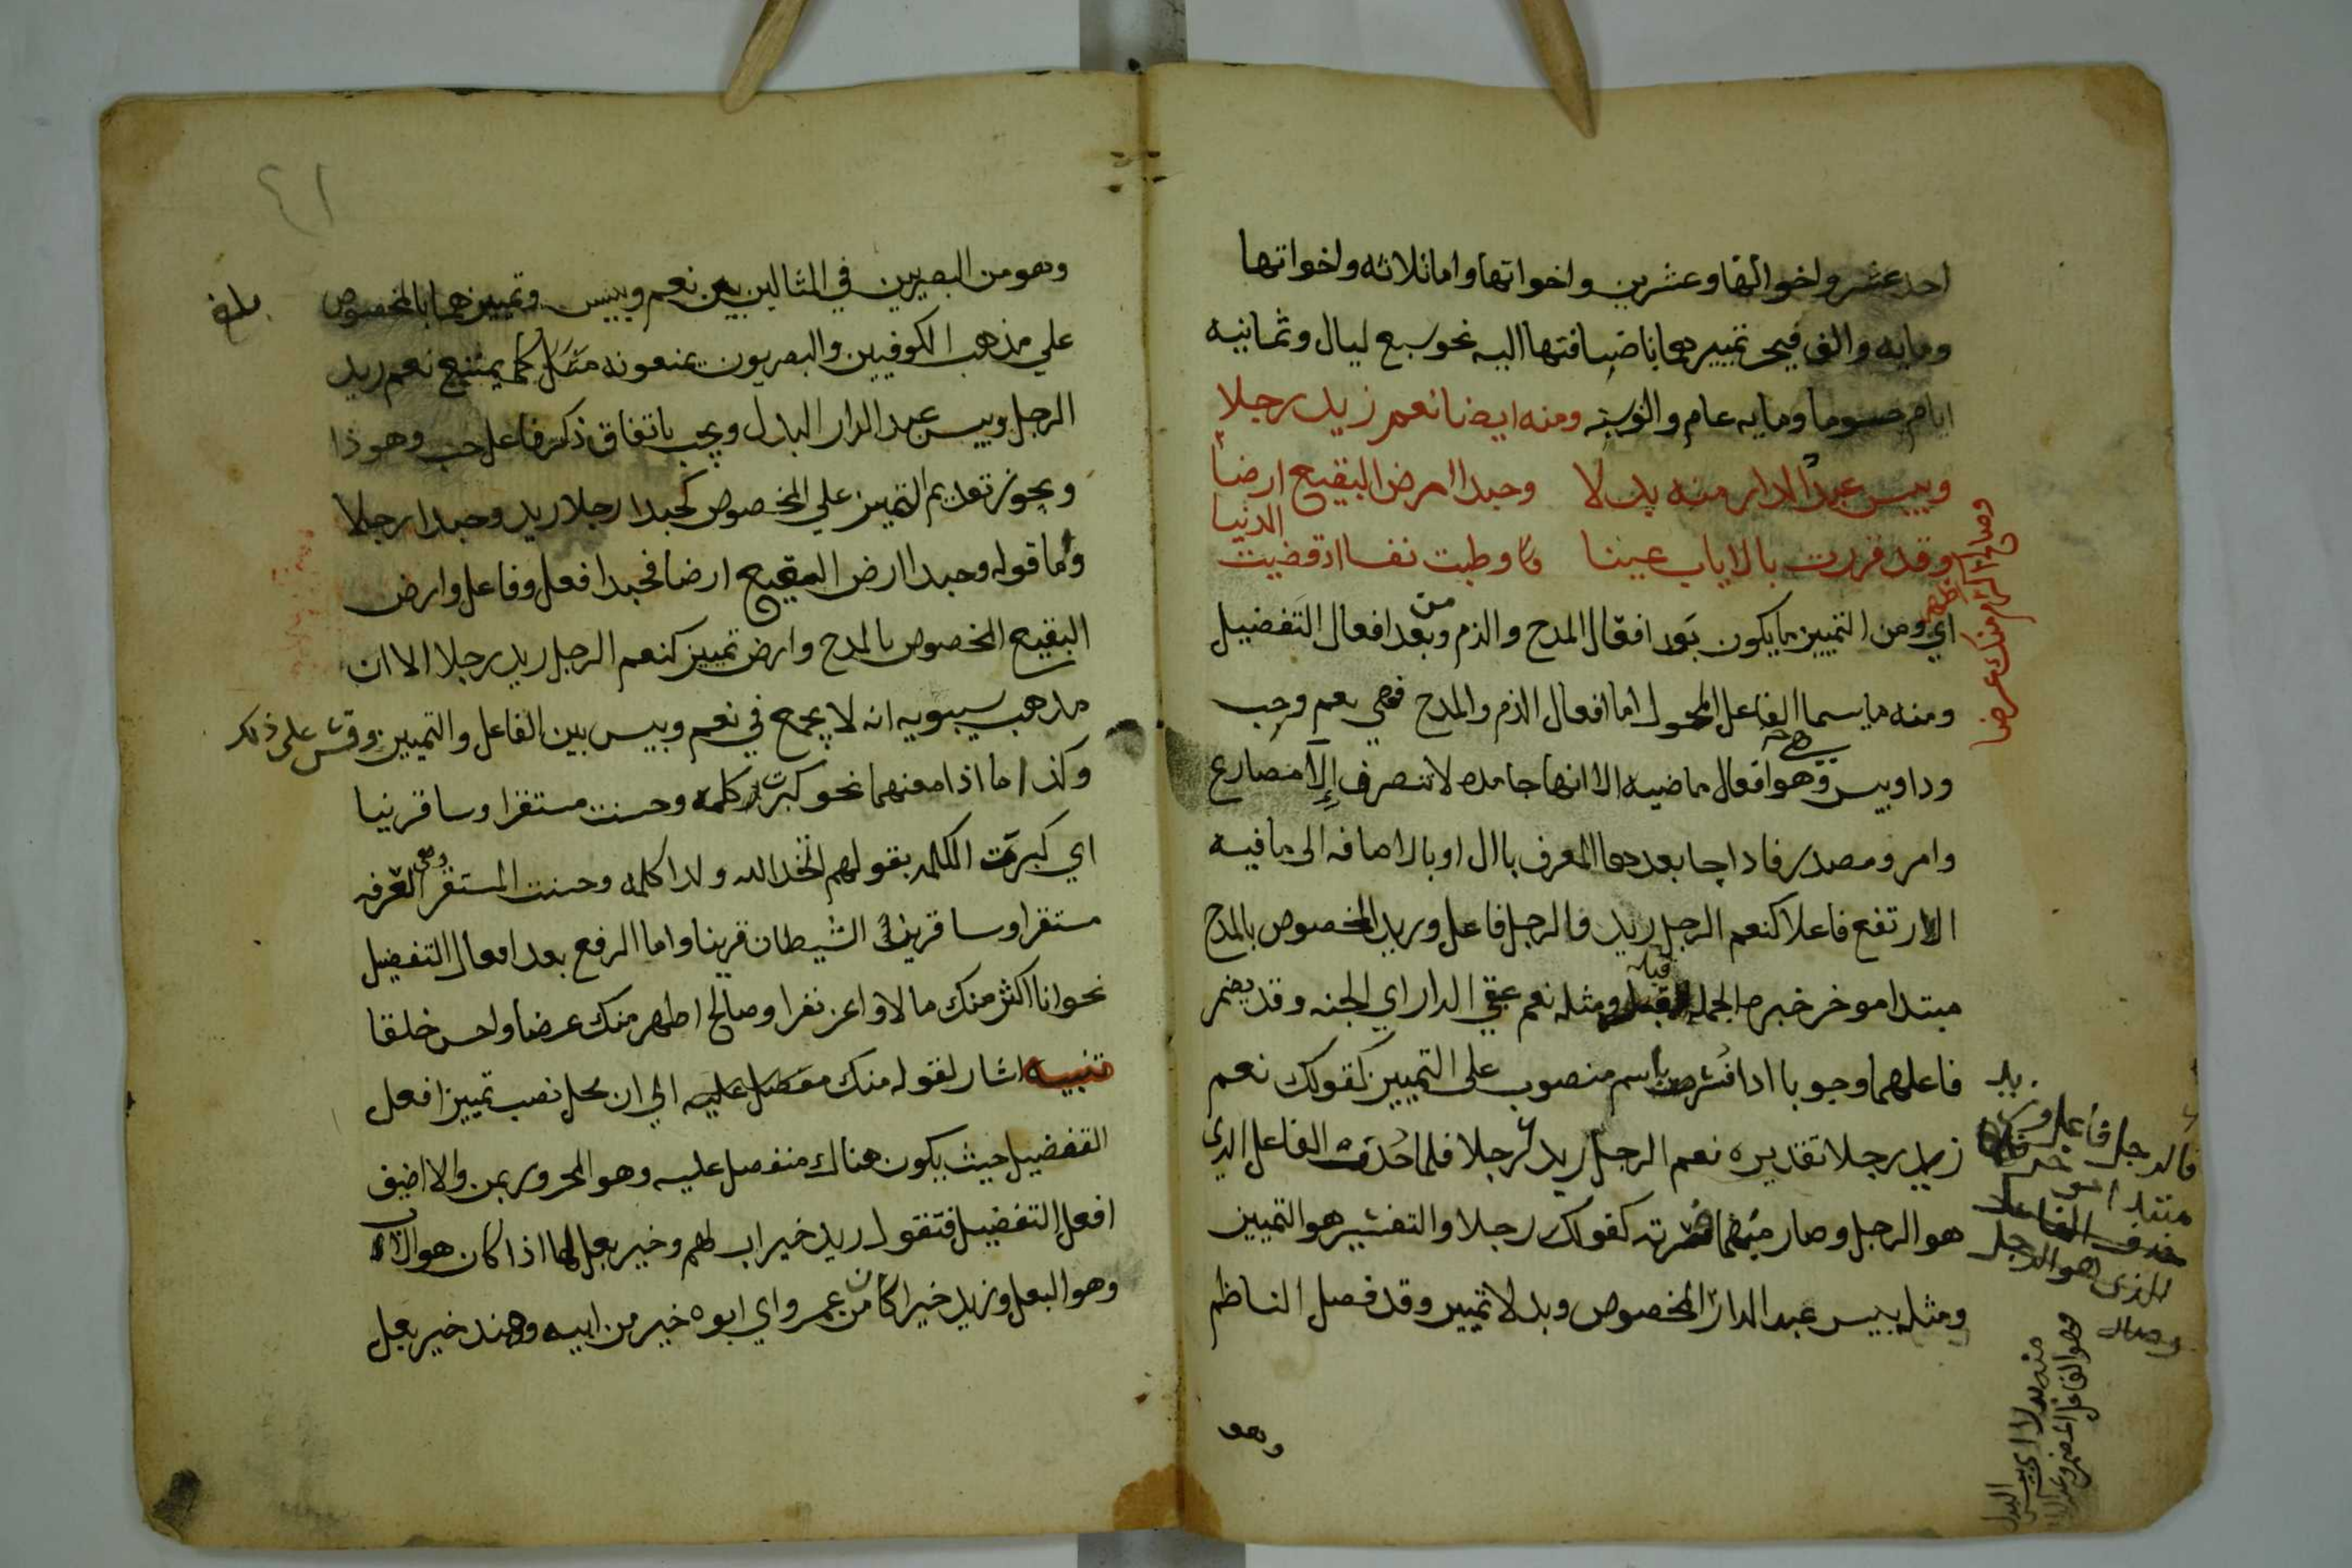 احد عشر واخواتها وعشرين واخواتها واما ثلاثه واخواتها
ومايه والف فيجر تمييزها باضافتها اليه نحو سبع ليال وثمانيه
ايام حسوما ومايه عام والف سنه ومنه ايضا نعم زيد رجلا
وبيس عبد الدار منه بدلا وحبذا ارض البقيع ارضا
وصالح اطهر منك عرضا
وقد قررت بالاياب عينا وطبت نفسا اذ قضيت الدينا
اي ومن التمييز ما يكون بعد افعال المدح والذم ومن بعد افعال التفضيل
ومنه ما يسما الفاعل المحول اما افعال الذم والمدح فهي نعم وحب
وذا وبيس وهو افعال ماضيه الا انها جامده لا تتصرف الا مضارع
وامر ومصدر فاذا جا بعدها المعرف بال او بالاضافه الى ما فيه
ال ارتفع فاعلا كنعم الرجل زيد فالرجل فاعل وزيد المخصوص بالمدح
مبتدا موخر خبره الجمله قبله ومثله نعم عقبي الدار اي الجنه وقد يضمر
فاعلهما وجوبا اذا فسر باسم منصوب على التمييز كقولك نعم
زيد رجلا تقديره نعم الرجل زيد رجلا فلما حذف الفاعل الذي
هو الرجل وصار مبهما فسرته كقولك رجلا والتفسير هو التمييز
ومثله بيس عبد الدار المخصوص وبدلا تمييز وقد فصل الناظم
فالرجل فاعل
الذي هو الرجل
وصار
منه بدلا اي بيس البدل
وهو الفاعل المضمر وعبد الدار
وهو
٤١
وهو من البصريين في المثالين بين نعم وبيس وتمييزهما بالمخصوص
بلغ
علي مذهب الكوفيين والبصريون يمنعونه مثل كما يمتنع نعم زيد
الرجل وبيس عبد الدار البدل ويجب باتفاق ذكر فاعل حب وهو ذا
ويجوز تقديم التمييز علي المخصوص كحبذا رجلا زيد وحبذا رجلا
واما قوله وحبذا ارض البقيع ارضا فحبذا فعل وفاعل وارض
البقيع المخصوص بالمدح وارض تمييز كنعم الرجل زيد رجلا الا ان
مذهب سيبويه انه لا يجمع في نعم وبيس بين الفاعل والتمييز وقس على ذلك
وكذا ما اذا معنهما نحو كبرت كلمه وحسنت مستقرا وسا قرينا
اي كبرت الكلمه بقولهم اتخذ الله ولدا كلمه وحسنت المستقر وهي الغرفه
مستقرا وسا قرينا الشيطان قرينا واما الرفع بعد افعال التفضيل
نحو انا اكثر منك مالا واعز نفرا وصالح اطهر منك عرضا واحسن خلقا
تنبيه اشار لقوله منك مفضل عليه الي ان محل نصب تمييز افعل
التفضيل حيث يكون هناك منفصل عليه وهو المجرور بمن والا اضيف
افعل التفضيل فتقول زيد خير اب لهم وخير بعل لها اذا كان هو الاب
وهو البعل وزيد خير ابا من عمرو اي ابوه خير من ابيه وهند خير بعل